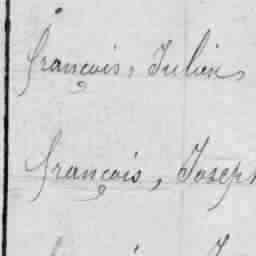 françois, Julien
françois, Joseph